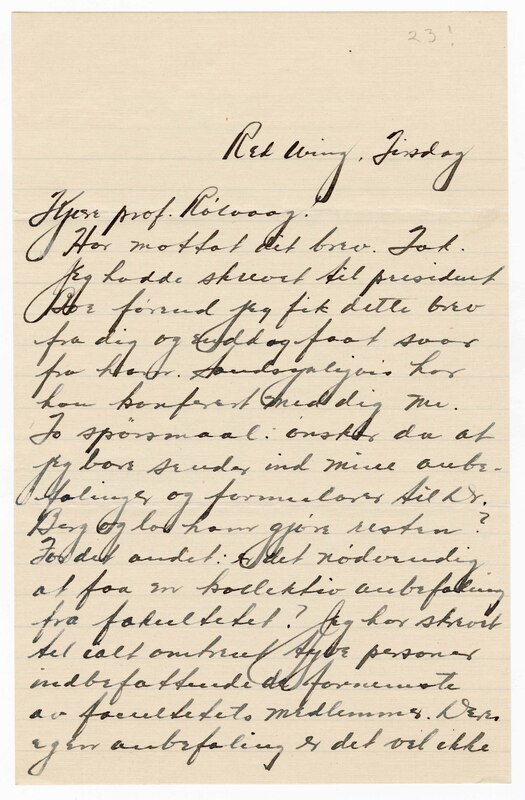 23!
Red Wing, Tirsdag
Kjere prof. Rölvaag!
Har mottat dit brev. Tak.
Jeg hadde skrevet til president
Boe förend jeg fik dette brev
fra dig og endog faat svar
fra ham. Sandsynligvis har
han konferert med dig nu.
To spörsmaal: önsker du at
jeg bare sender ind mine anbe-
falinger og formularer til Dr.
Berg og la ham gjöre resten?
For det andet: er det nödvendig
at faa en kollektiv anbefaling
fra fakultetet? Jeg har skrevet
til ialt omtrent tyve personer
indbefattende de fornemste
av facultetets medlemmer. Deres
egen anbefaling er det vel ikke